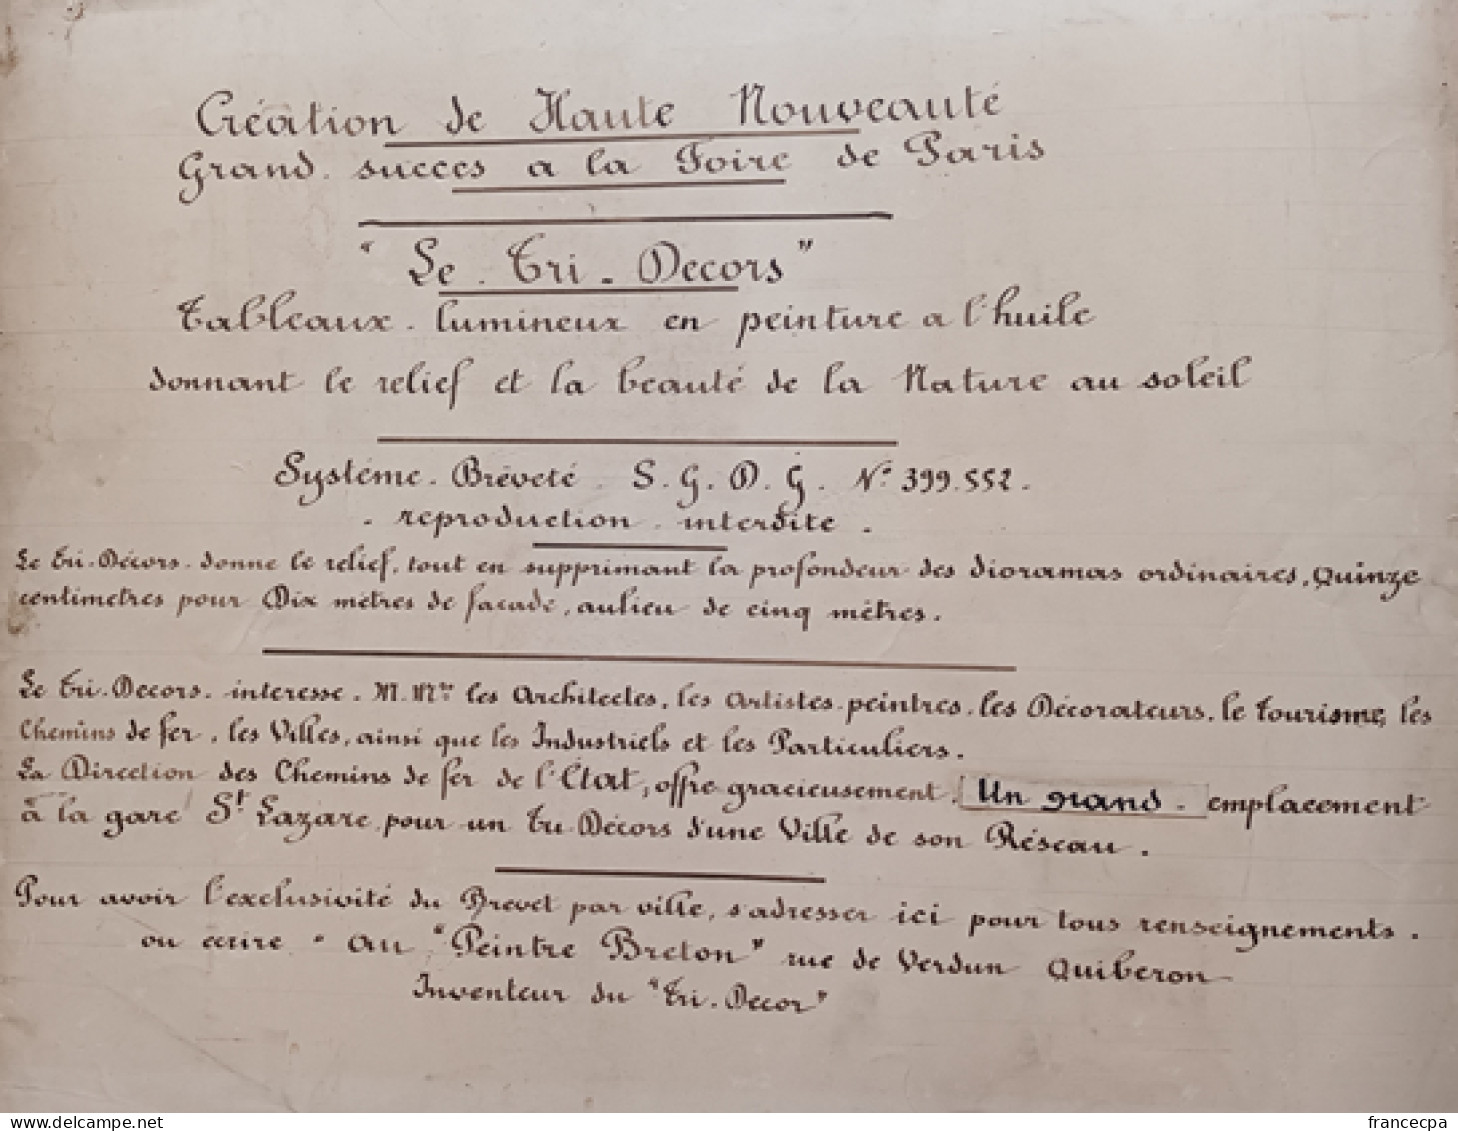 Création de Haute Nouveauté
Grand. succes a la Foire de Paris
"Le. Tri. Decors"
Tableaux. lumineux en peinture a l'huile
donnant le relief et la beauté de la Nature au soleil
Systéme. Brèveté. S.G.D.G. N° 399.552.
. reproduction. interdite.
Le Tri.Décors. donne le relief, tout en supprimant la profondeur des dioramas ordinaires, Quinze
centimetres pour Dix mètres de facade, aulieu de cinq mètres.
Le Tri.Decors. interesse. M.Mrs les Architectes, les Artistes.peintres, les Décorateurs, le tourisme, les
Chemins de fer, les Villes, ainsi que les Industriels et les Particuliers.
La Direction des Chemins de fer de l'État, offre gracieusement. Un grand. emplacement
à la gare St Lazare pour un Tri.Décors d'une Ville de son Réseau.
Pour avoir l'exclusivité du Brevet par ville, s'adresser ici pour tous renseignements.
ou ecrire. au "Peintre Breton" rue de Verdun Quiberon
Inventeur du "Tri.Decor"
delcampe.net
francecpa